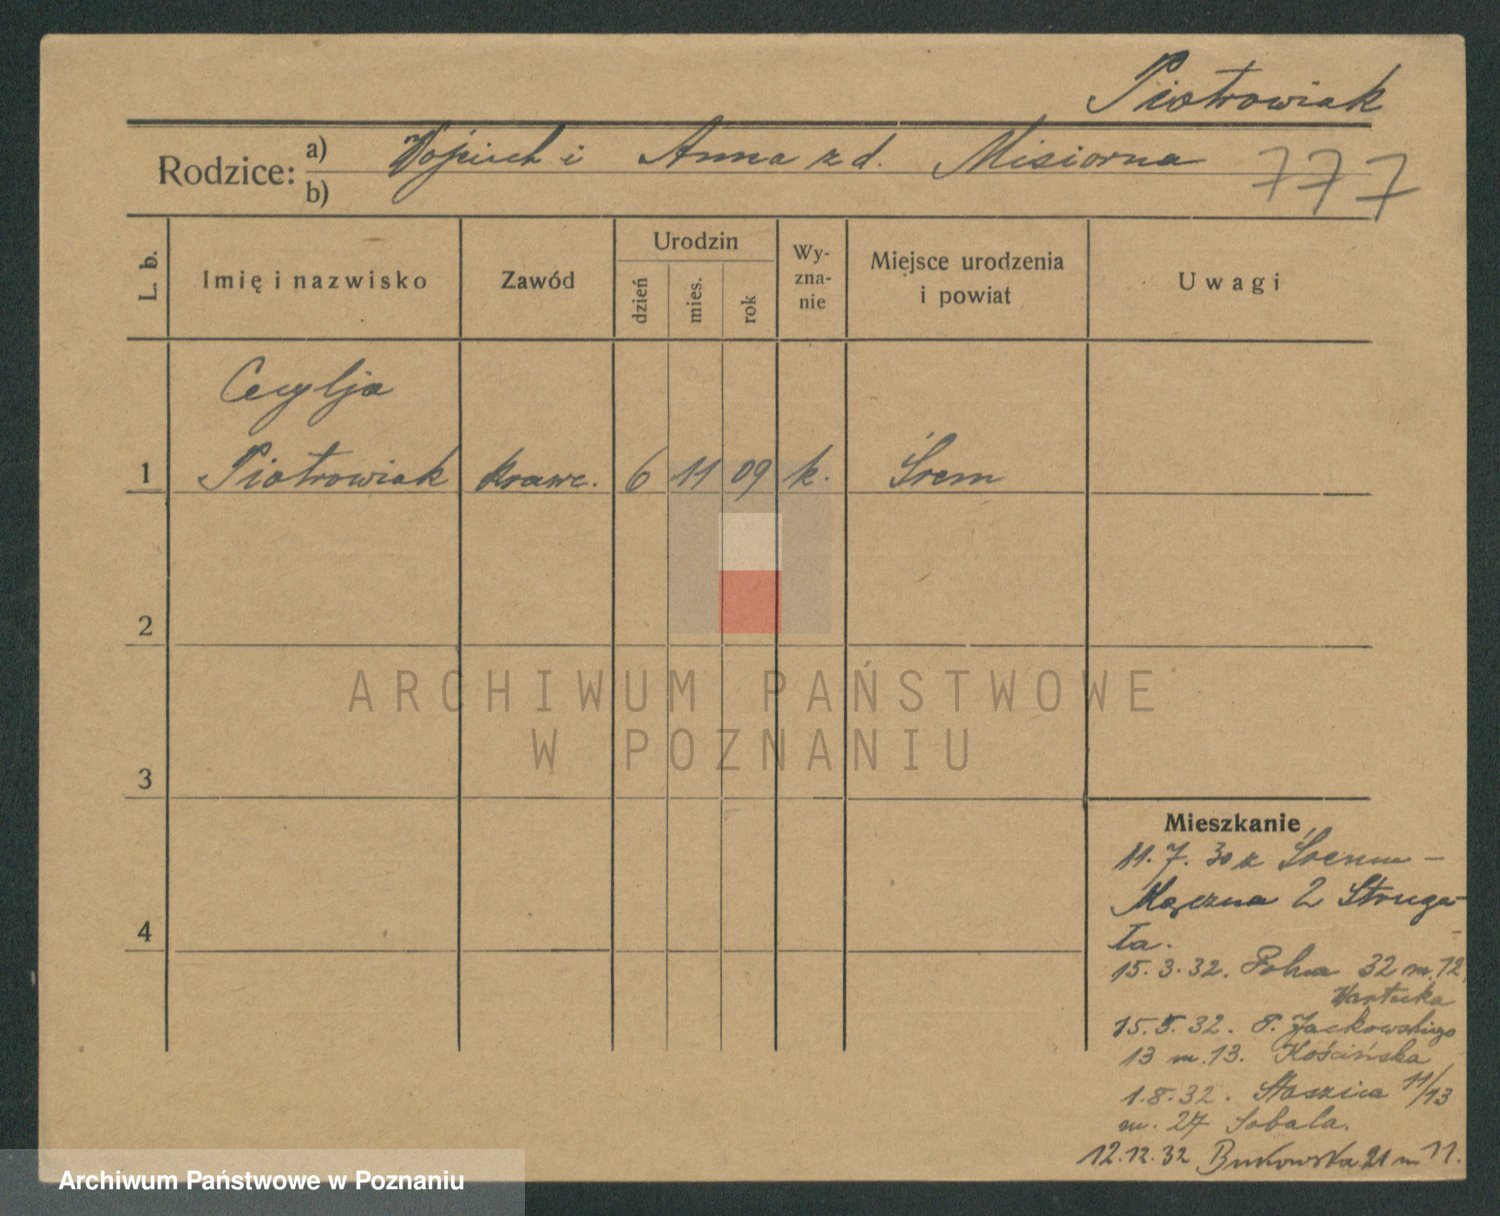 Piotrowiak
Rodzice: a) Wojciech i Anna z d. Misiorna
b)
777
L. b.
Imię i nazwisko
Zawód
Urodzin
dzień
mies.
rok
Wy-
zna-
nie
Miejsce urodzenia
i powiat
Uwagi
Cecylja
1 Piotrowiak krawc. 6 11 09 k. Śrem
2
3
4
ARCHIWUM PAŃSTWOWE
W POZNANIU
Mieszkanie
11.7.30 z Śremu -
Łączna 2 Struga-
ła.
15.3.32. Polna 32 m. 12
Wartecka
15.5.32. P. Jackowskiego
13 m. 13. Kościńska
1.8.32. Staszica 11/13
m. 27 Sobala.
12.12.32 Bukowska 21 m 11.
Archiwum Państwowe w Poznaniu